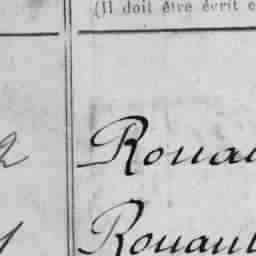 (Il doit être écrit e
2 Roua
1 Rouaul